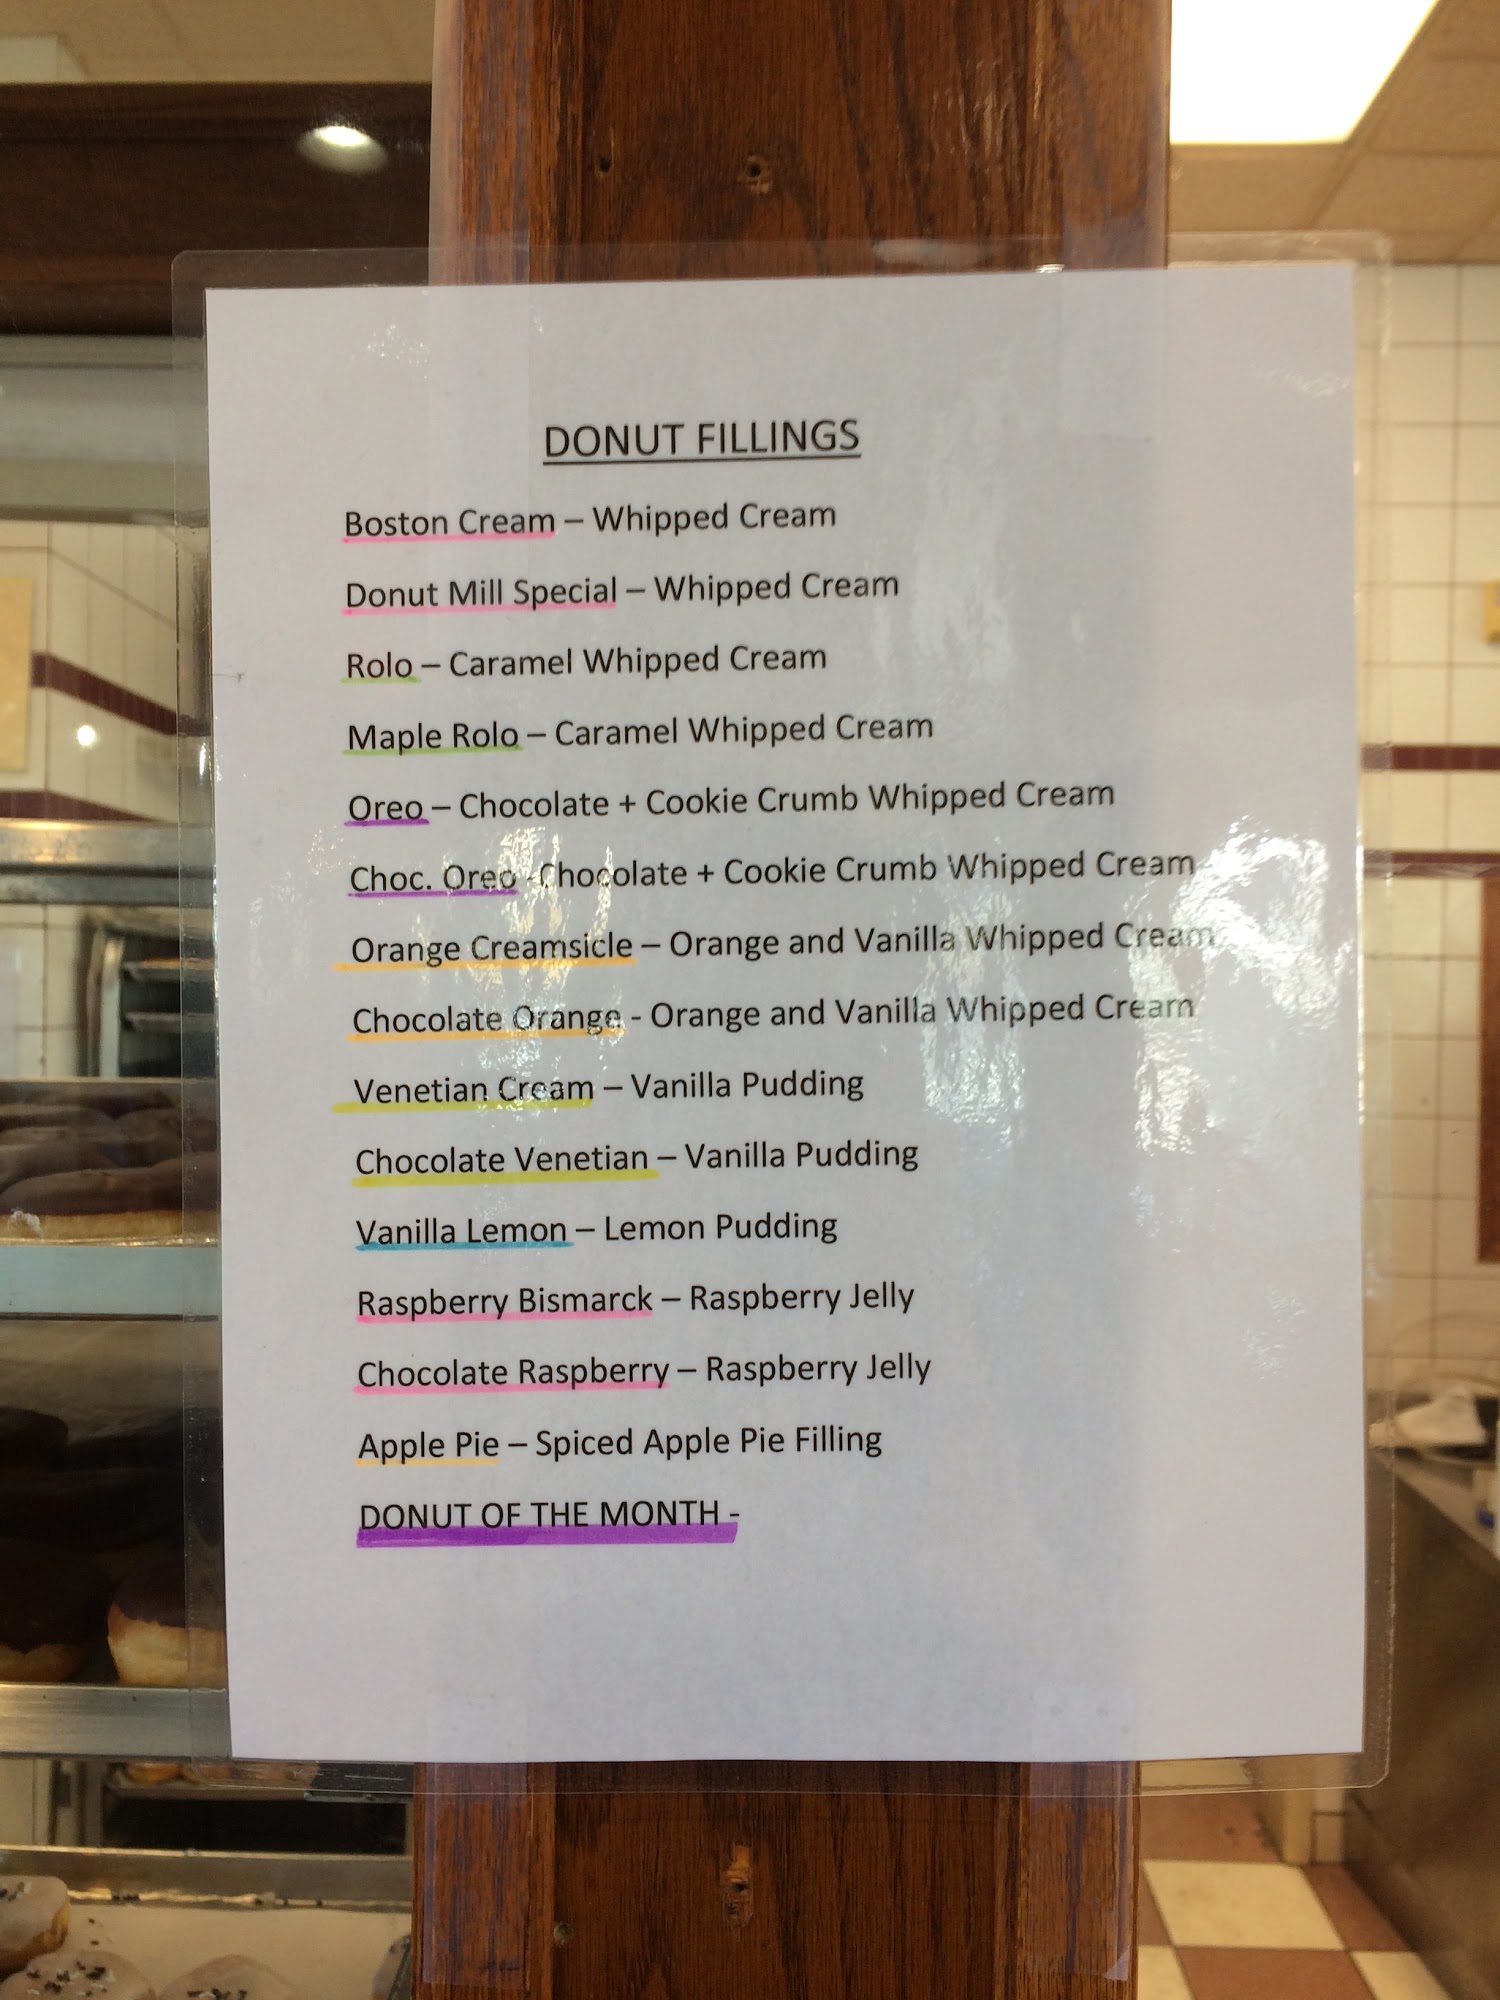 DONUT FILLINGS
Boston Cream – Whipped Cream
Donut Mill Special – Whipped Cream
Rolo – Caramel Whipped Cream
Maple Rolo – Caramel Whipped Cream
Oreo – Chocolate + Cookie Crumb Whipped Cream
Choc. Oreo -Chocolate + Cookie Crumb Whipped Cream
Orange Creamsicle – Orange and Vanilla Whipped Cream
Chocolate Orange - Orange and Vanilla Whipped Cream
Venetian Cream – Vanilla Pudding
Chocolate Venetian – Vanilla Pudding
Vanilla Lemon – Lemon Pudding
Raspberry Bismarck – Raspberry Jelly
Chocolate Raspberry – Raspberry Jelly
Apple Pie – Spiced Apple Pie Filling
DONUT OF THE MONTH -